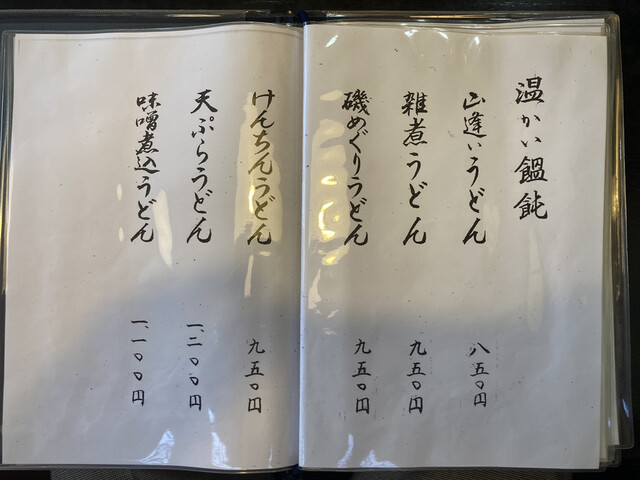 温かい饂飩
山逢いうどん 八五〇円
雑煮うどん 九五〇円
磯めぐりうどん 九五〇円
けんちんうどん 九五〇円
天ぷらうどん 一、二〇〇円
味噌煮込うどん 一、一〇〇円